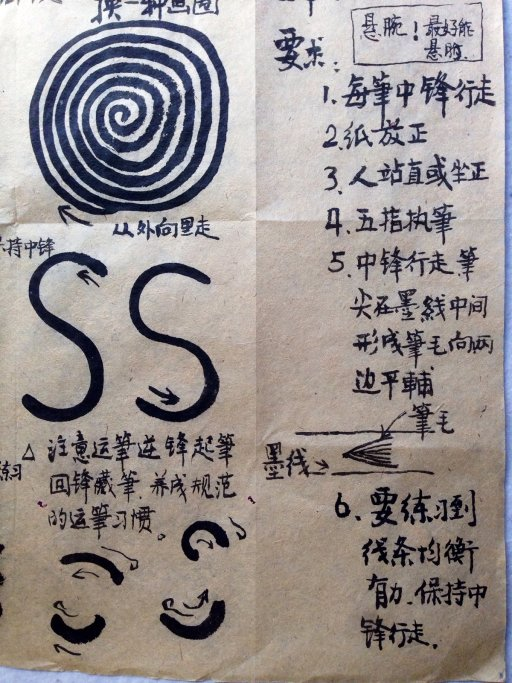 换一种画圈
从外向里走
持中锋
△ 注意运筆逆锋起筆
回锋藏筆.养成规范
的运筆习惯。
练习
悬腕！最好能
悬肘.
要求：
1. 每筆中锋行走
2.纸放正
3. 人站直或坐正
4. 五指执筆
5. 中锋行走.筆
尖在墨线中间
形成筆毛向两
边平輔
筆毛
墨线
6. 要练习到
线条均衡
有力.保持中
锋行走.